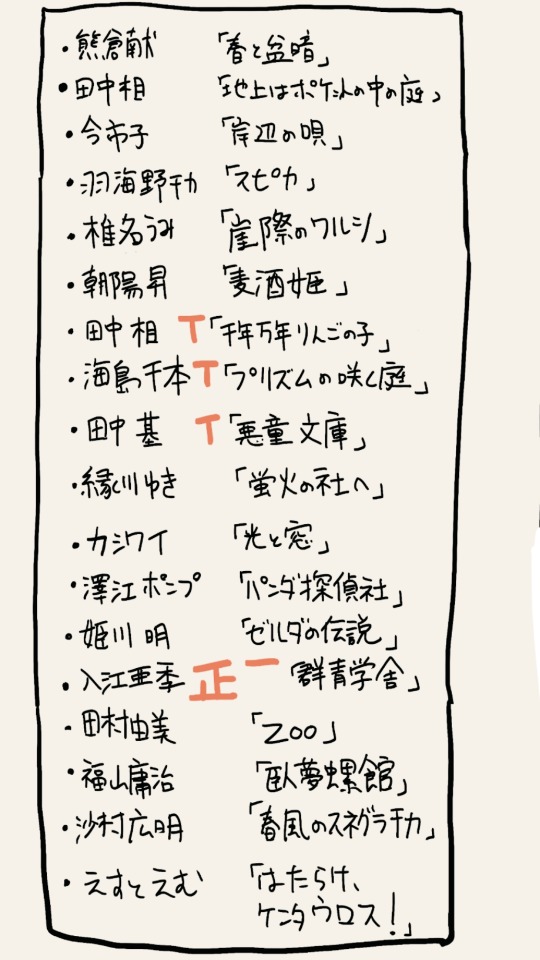 ・熊倉献 「春と盆暗」
・田中相 「地上はポケットの中の庭」
・今市子 「岸辺の唄」
・羽海野千カ 「スピカ」
・椎名うみ 「崖際のワルツ」
・朝陽昇 「麦酒姫」
・田中相 T 「千年万年りんごの子」
・海島千本 T 「プリズムの咲く庭」
・田中基 T 「悪童文庫」
・緑川ゆき 「蛍火の社へ」
・カシワイ 「光と窓」
・澤江ポンプ 「パンダ探偵社」
・姫川明 「ゼルダの伝説」
・入江亜季 正一 「群青学舎」
・田村由美 「ZOO」
・福山庸治 「臥夢螺館」
・沙村広明 「春風のスネグラチカ」
・えすとえむ 「はたらけ、
ケンタウロス！」